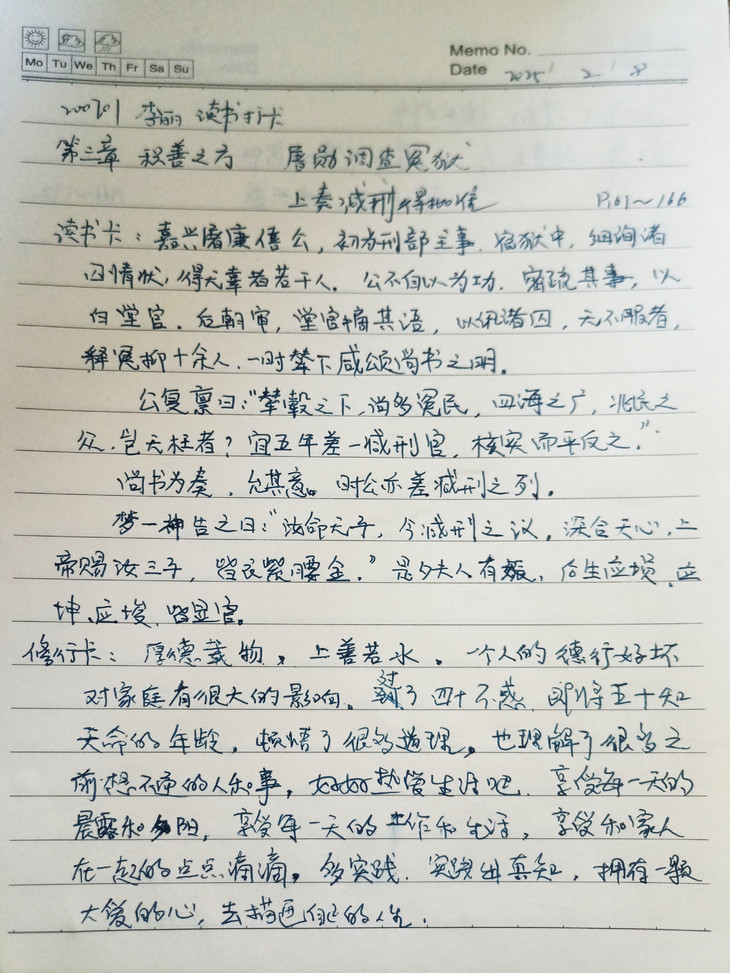 Memo No.
Mo Tu We Th Fr Sa Su
Date 2025 / 2 / 8
200701 李丽 读书打卡
第三章 积善之方 屠勋调查冤狱
上奏减刑得批准 P161~166
读书卡：嘉兴屠康僖公，初为刑部主事，宿狱中，细询诸
囚情状，得无辜者若干人。公不自以为功，密疏其事，以
白堂官。后朝审，堂官摘其语，以讯诸囚，无不服者，
释冤抑十余人。一时辇下咸颂尚书之明。
公复禀曰："辇毂之下，尚多冤民，四海之广，兆民之
众，岂无枉者？宜五年差一减刑官，核实而平反之。"
尚书为奏，允其意。时公亦差减刑之列。
梦一神告之曰："汝命无子，今减刑之议，深合天心，上
帝赐汝三子，皆衣紫腰金。"是夕夫人有娠，后生应埙、应
坤、应埈，皆显官。
修行卡：厚德载物，上善若水。一个人的德行好坏
对家庭有很大的影响。过了四十不惑，即将五十知
天命的年龄，顿悟了很多道理，也理解了很多之
前想不通的人和事，好好热爱生活吧，享受每一天的
晨露和夕阳，享受每一天的工作和生活，享受和家人
在一起的点点滴滴，多实践，实践出真知，拥有一颗
大爱的心，去描画自己的人生。